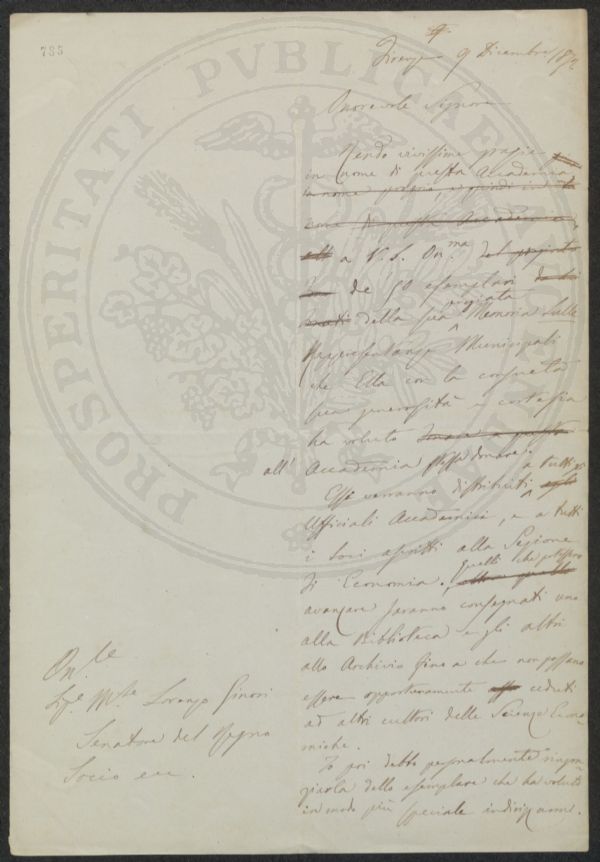 735
Firenze 9 Dicembre 1872
Onorevole Signore
Rendo vivissime grazie
in nome di questa Accademia
a nome proprio, e quindi
come di questa Accademia
a V. S. On.ma del
de 50 esemplari
della sua pregiata Memoria sulle
Rappresentanze Municipali
che Ella con la consueta
sua generosità e cortesia
ha voluto a questa
all' Accademia stessa donare.
Essi verranno distribuiti a tutti gli
Ufficiali Accademici, e a tutti
i Soci ascritti alla Sezione
di Economia. Quelli che potessero
avanzare saranno consegnati uno
alla Biblioteca e gli altri
allo Archivio fino a che non possano
essere opportunamente ceduti
ad altri cultori delle Scienze Econo-
miche.
Io poi debbo personalmente ringra-
ziarla dello esemplare che ha voluto
in modo più speciale indirizzarmi.
On.le
Sig.e M.se Lorenzo Ginori
Senatore del Regno
Socio ecc.
PROSPERITATI PVBLICAE AVGENDAE